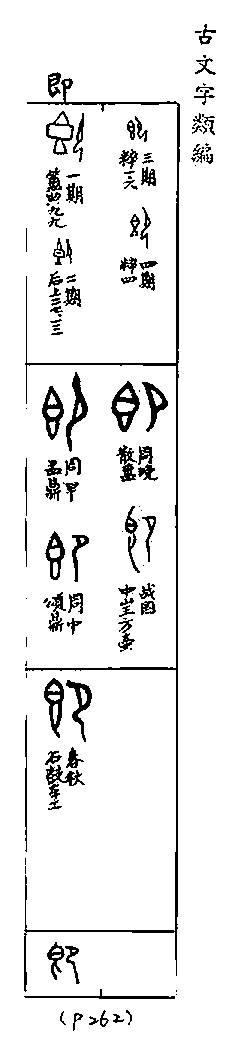 古文字類編
即
三期
粹一六
四期
粹四
一期
二期
后上三七.三
周晚
散盤
战国
中山王方壶
周早
盂鼎
周中
頌鼎
春秋
石鼓车工
(P262)